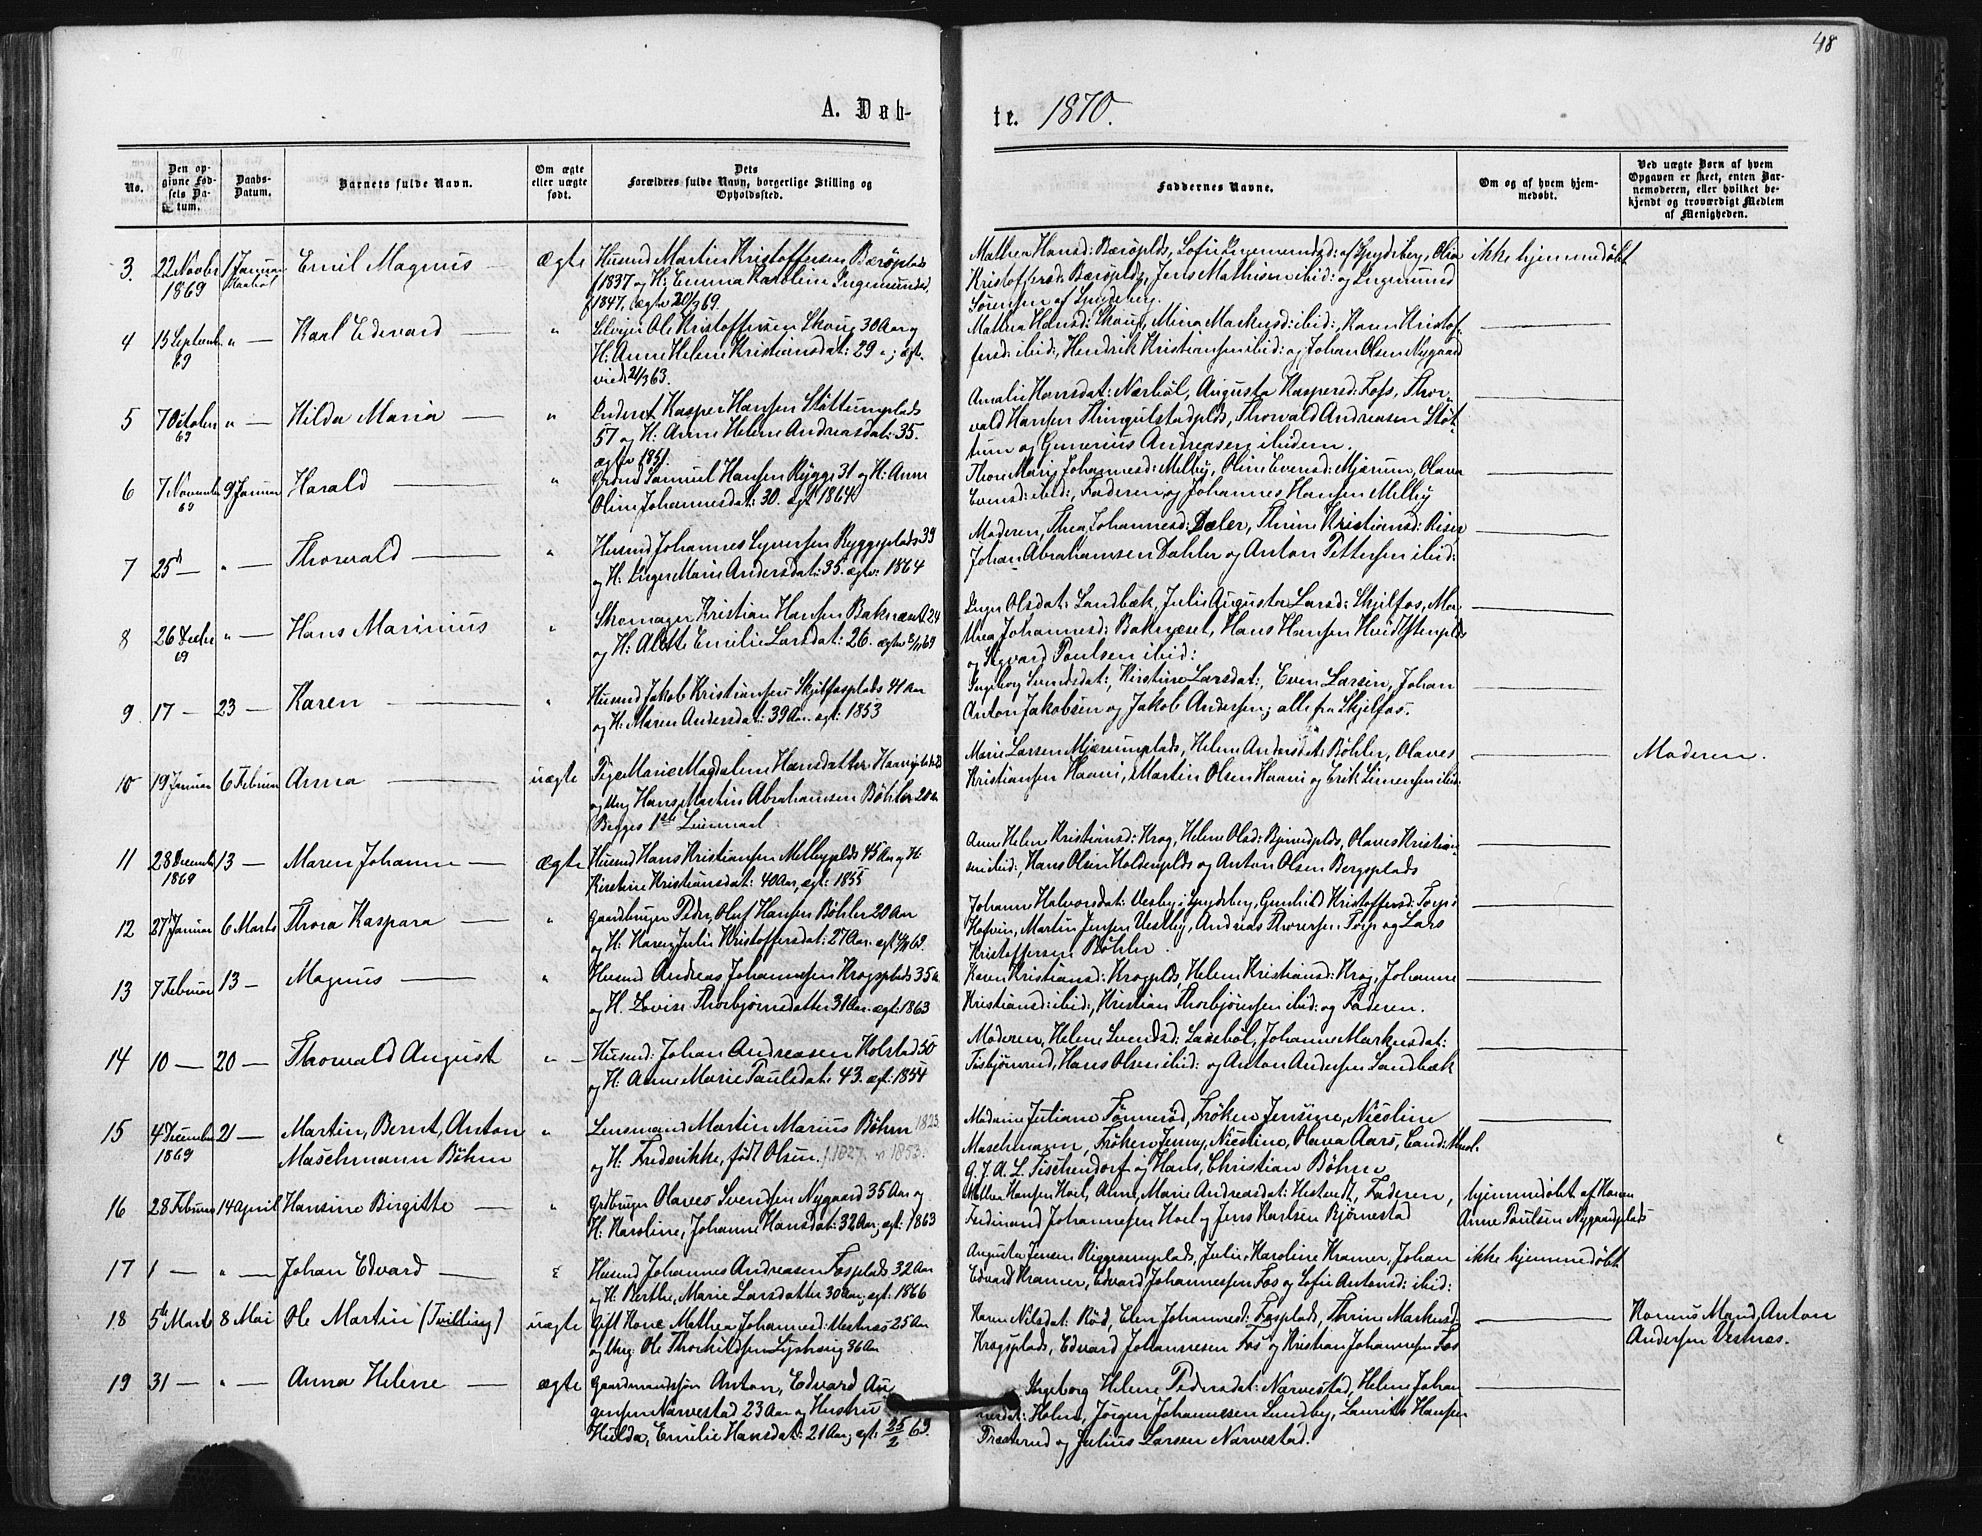 48
A. Døb-
te. 1870.
No.
Den op-
givne Fød-
sels Da-
tum.
Daabs-
Datum.
Barnets fulde Navn.
Om ægte
eller uægte
født.
Dets
Forældres fulde Navn, borgerlige Stilling og
Opholdssted.
Faddernes Navne.
Om og af hvem hjem-
medøbt.
Ved uægte Børn af hvem
Opgaven er skeet, enten Bar-
nemoderen, eller hvilket be-
kjendt og troværdigt Medlem
af Menigheden.
3. 22 Novbr 1869
1 Januar
Emil Magnus
ægte
Husmd Martin Kristoffersen Bærøplads
f 1837 og H: Emma Karolina Ingemundsd.
f 1847, ægtv 20/3 69.
Mathea Hansd: Bærøplds, Sofie Ingemundsd: af Spydeberg, Olia
Kristoffersd: Bærøplds, Jens Mathisen ibid: og Ingemund
Sørensen af Spydeberg.
ikke hjemmedøbt
4 15 September 69
" —
Karl Edevard —
"
Selvejer Ole Kristoffersen Skoug 30 Aar og
H: Anne Helene Kristiansdat: 29 "; ægt-
vied 21/3 63.
Mathea Hansd: Skoug, Mina Markusd: ibid:, Karen Kristof-
fersd: ibid:, Hendrik Kristiansen ibid: og Johan Olsen Nygaard
5 7 October 69
" —
Hilda Maria —
"
Inderst Kasper Hansen Støttumplads
57 og H: Anne Helene Andreasdat: 35.
ægtv 1851.
Amalie Hansdat: Nærbøl, Augusta Kaspersd: Fos, Thor-
vald Hansen Thingulstadplds, Thorvald Andreasen Støt-
tum og Gunerius Andreasen ibidem.
6 7 November 69
9 Januar
Harald —
"
Samuel Hansen Rygge 31 og H: Anne
Oline Johannesdat: 30. ægt 1864
Thore Marie Johannesd: Melby, Oline Evensd: Mjærum, Olava
Evensd: ibid:, Faderen og Johannes Hansen Melby
7 25d —
" —
Thorvald —
"
Husmd Johannes Syversen Ryggeplads 39
og H: Inger Marie Andersdat: 35. ægtv: 1864
Moderen, Thea Johannesd: Dæler, Thrine Kristiansd: Riser
Johan Abrahamsen Dahler og Anton Pettersen ibid:
8 26 Decbr 69
" —
Hans Marinius
"
Skomager Kristian Hansen Baknæset 24
og H: Alette Emilie Larsdat: 26. ægtv 69
Inger Olsdat: Sandbæk, Julie Auguste Larsd: Skjelfos, Mar-
thea Johannesd: Baknæset, Hans Hansen Hvidstenplds
og Sigvard Poulsen ibid:
9 17 —
23 —
Karen —
"
Husmd Jakob Kristiansen Skjelfosplads 41 Aar
og H: Maren Andersdat: 39 Aar. ægt: 1853
Ingeborg Svendsdat:, Kirstine Larsdat:, Even Larsen, Johan
Anton Jakobsen og Jakob Andersen; alle fra Skjelfos.
10 19 Januar
6 Februar
Anna —
uægte
Pige Marie Magdalene Hansdatter Haavieplads 23
og Ung: Hans Martin Abrahamsen Bøhler 20 Aar
Begges 1ste Leiermaal.
Marie Larsen Mjærumplads, Helene Andersdat: Bøhler, Olaves
Kristiansen Haavi, Martin Olsen Haavi og Erik Simensen ibid:
Moderen.
11 28 December 1869
13 —
Maren Johanne —
ægte
Husmd Hans Kristiansen Melbyplds 45 Aar og H:
Kirstine Kristiansdat: 40 Aar, ægt: 1855
Anne Helene Kristiansd: Krog, Helene Olsd: Bjervdplds, Olaves Kristian-
sen ibid:, Hans Olsen Holdenplds og Anton Olsen Bergsplads
12 27d Januar
6 Marts
Thora Kaspara —
"
Gaardbruger Peder Oluf Hansen Bøhler 20 Aar
og H: Karen Julie Kristoffersdat: 27 Aar. ægt 69.
Johanne Halvorsdat: Vesby i Spydeberg, Gunhild Kristoffersd: Torp i
Hofvin, Martin Jensen Vestby, Andreas Thoresen Torp og Lars
Kristoffersen Bøhler.
13 7 Februar
13 —
Magnus —
"
Husmd Andreas Johannesen Krogsplads 35 Aar
og H. Lovise Thorbjørnsdatter 31 Aar. ægt: 1863
Karen Kristiansd: Krogplds, Helene Kristiansd: Krog, Johanne
Kristiansd: ibid:, Kristian Thorbjørnsen ibid: og Faderen.
14 10 —
20 —
Thorvald August
" —
Husmd: Johan Andreasen Holstad 50
og H: Anne Marie Paulsdat: 43. æf: 1854
Moderen, Helene Svendsd: Lasebøl, Johanne Markusdat:
Hans Olsen ibid: og Anton Andersen Sandbæk
15 4 December 1869
21 —
Martin, Bernt, Anton
Maschmann Bøhm
"
Lensmand Martin Marius Bøhm 1825.
og H: Frederikke, født Olsen f. 1827. v 1853.
Madame Juliane Tønnerød, Frøken Jensine, Nicoline
Maschmann, Frøken Jenny, Nicoline, Olava Aars, Cand: theol.
G. J. A. L. Tischendorf og Hans, Christian Bøhm
16 28 Februar
14 April
Hansine Birgitte —
"
Grdbruger Olaves Svendsen Nygaard 35 Aar og
H: Karoline, Johanne Hansdat: 32 Aar, ægt: 1863
Mathea Hansen Hoel, Anne Marie Andreasdat: Hestvedt, Faderen,
Ferdinand Johannesen Hoel og Jens Karlsen Bjørnestad
hjemmedøbt af Konen
Anne Paulsen Nygaardplads
17 1 —
" —
Johan Edvard —
Husmd Johannes Andreasen Fosplads 32 Aar
og H: Berthe, Marie Larsdatter 30 Aar, ægt: 1866
Augusta Jensen Riggesemplads, Julie Karoline Kramer, Johan
Edvard Kramer, Edvard Johannessen Fos og Sofie Antonsd: ibid:
ikke hjemmedøbt
18 5te Marts
8 Mai
Ole Martin (Tvilling)
uægte
Gift Kone Mathea Johannesd: Vestnes 25 Aar
og Ung: Ole Thorkildsen 36 Aar
Karen Nilsdat: Rød, Elen Johannesd: Fosplads, Thrine Markusd:
Krogsplads, Edvard Johannesen Fos og Kristian Johannesen Fos
Konens Mand, Anton
Andersen
19 31 —
" —
Anna Helene —
ægte
Gaardmandssøn Anton, Edvard Au-
gensen Narvestad 23 Aar og Hustru
Hulda, Emilie Hansdat: 21 Aar, ægt. 25/2 69.
Ingeborg Helene Pedersdat: Narvestad, Helene Johan-
nesdat: Holm, Jørgen Johannesen Lundby, Laurits Hansen
Træterud og Julius Larsen Narvestad.